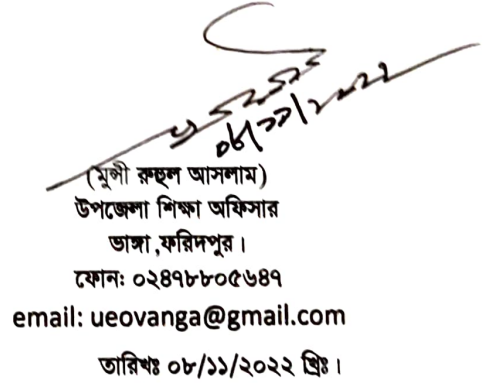 ০৮/১১/২০২২
(মুন্সী রুহুল আসলাম)
উপজেলা শিক্ষা অফিসার
ভাঙ্গা ,ফরিদপুর।
ফোন: ০২৪৭৮৮০৫৬৪৭
email: ueovanga@gmail.com
তারিখঃ ০৮/১১/২০২২ খ্রিঃ।